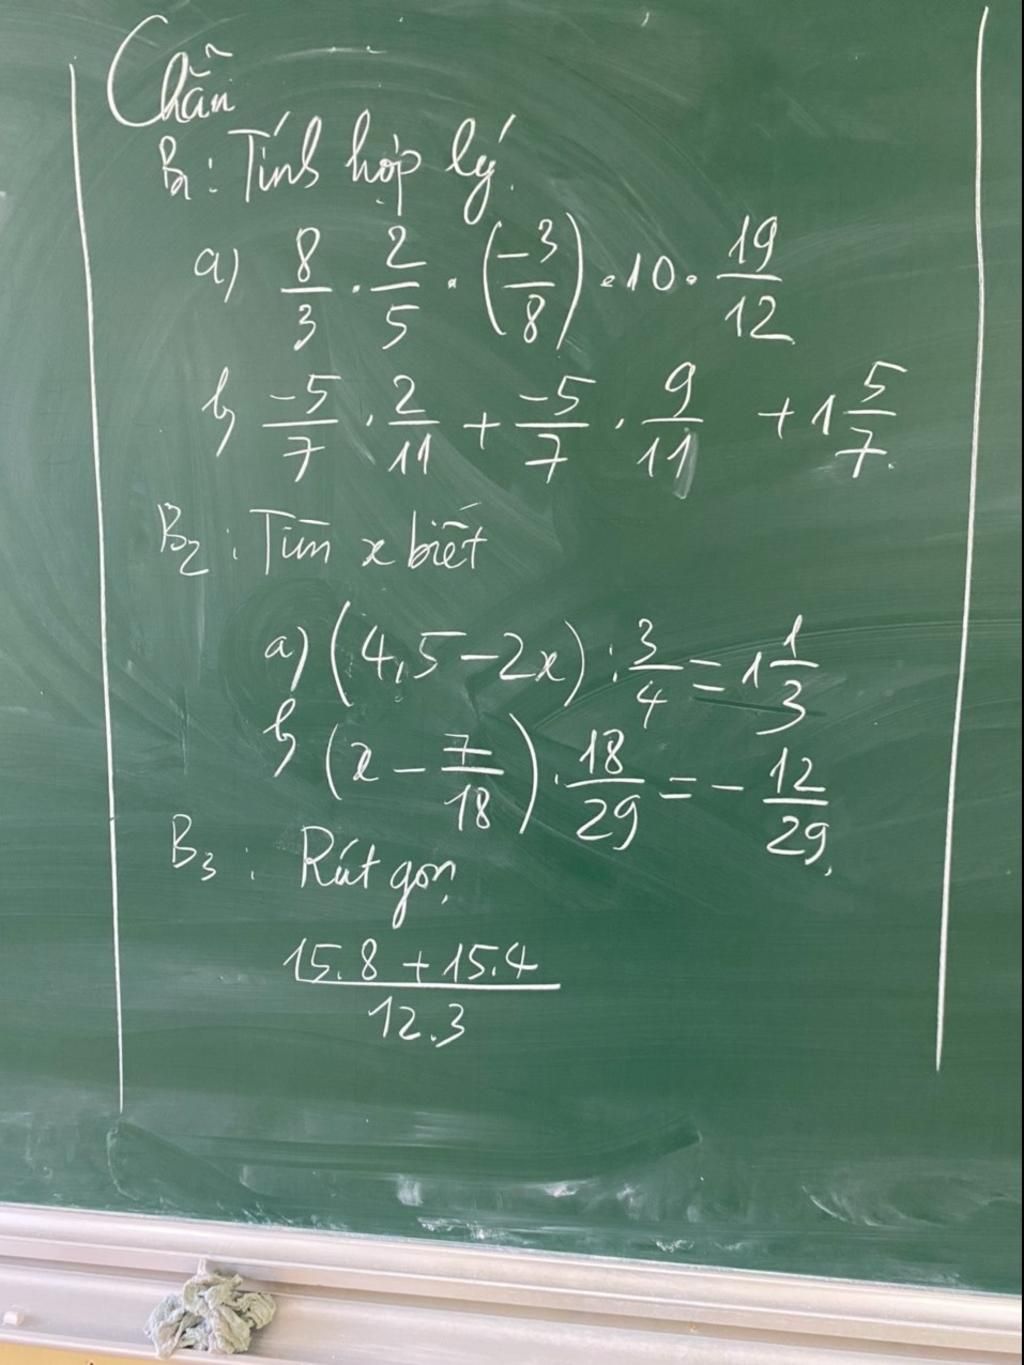 Chẵn
B1: Tính hợp lý.
a) 8/3 . 2/5 . (-3/8) . 10 . 19/12
b) -5/7 . 2/11 + -5/7 . 9/11 + 1 5/7.
B2: Tìm x biết
a) (4,5 - 2x) : 3/4 = 1 1/3
b) (x - 7/18) . 18/29 = - 12/29.
B3: Rút gọn
15.8 + 15.4
12.3